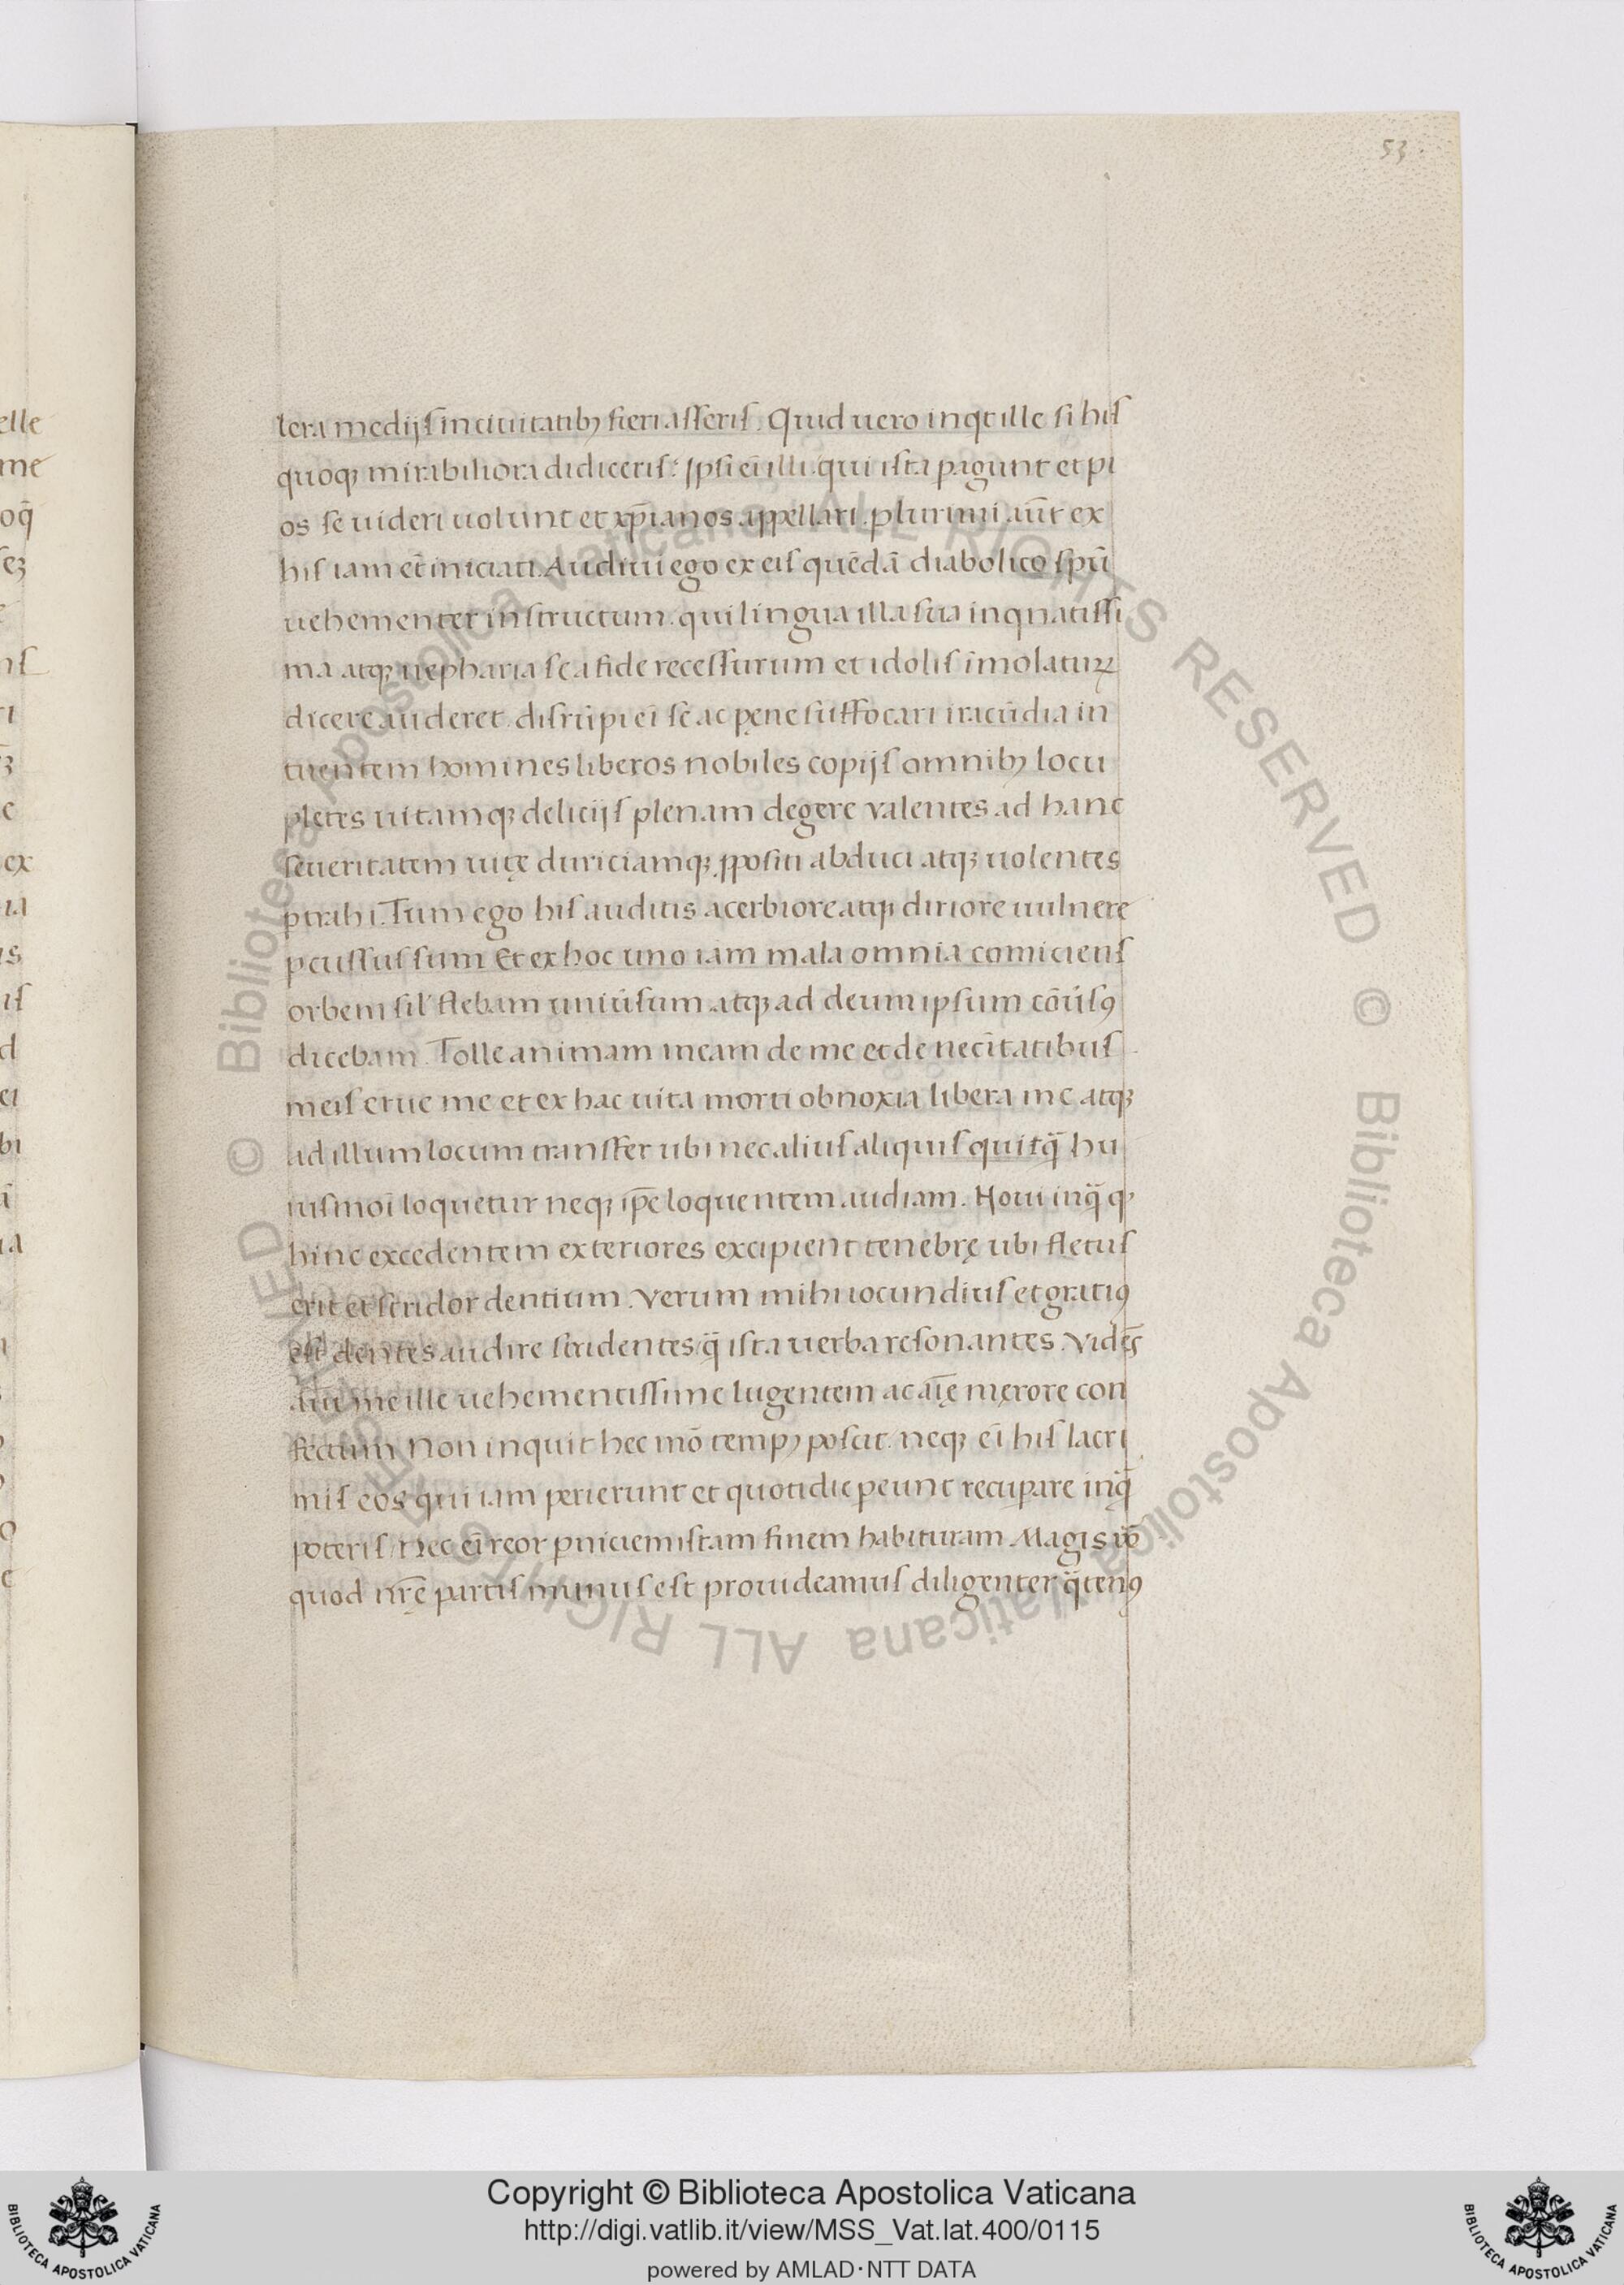 53
lera medijs in ciuitatibꝫ fieri asseris. Quid uero inqt ille si his
quoqꝫ mirabiliora didiceris? Ipsi eī illi qui ista pagunt et pi
os se uideri uolunt et xp̄ianos appellari. plurimi aūt ex
his iam et̄ iniciati. Audiui ego ex eis quēdā diabolico spū
uehementer instructum. qui lingua illa sua inqnatissi
ma atqꝫ nepharia se a fide recessurum et idolis īmolatuꝝ
dicere auderet. disrūpi eī se ac pene suffocari iracūdia in
tuentem homines liberos nobiles copijs omnibꝫ locu
pletes uitamqꝫ delicijs plenam degere valentes ad hanc
seueritatem uitę duriciamqꝫ ꝓpositi abduci atqꝫ uolentes
ptrahi. Tum ego his auditis acerbiore atqꝫ diriore uulnere
pcussus sum Et ex hoc uno iam mala omnia comiciens
orbem sil' flebam uniūsum atqꝫ ad deum ipsum cōūsꝰ
dicebam. Tolle animam meam de me et de necītatibus
meis erue me et ex hac uita morti obnoxia libera me atqꝫ
ad illum locum transfer ubi nec alius aliquis quitq̄ hu
iusmoi loquetur neqꝫ ip̄e loquentem audiam. Noui inq̄ qꝫ
hinc excedentem exteriores excipient tenebrę ubi fletus
erit et stridor dentium. Verum mihi iocundius et gratiꝰ
est dentes audire stridentes q̄ ista uerba resonantes. Vidēs
aūt me ille uehementissime lugentem ac aīę merore con
fectum Non inquit hec mō tempꝫ poscit. neqꝫ eī his lacri
mis eos qui iam perierunt et quotidie peunt recupare inq̄
poteris. Nec eī reor pniciem istam finem habituram Magis ūo
quod nr̄ę partis munus est prouideamus diligenter q̄tenꝰ
elle
me
oq̄
ex
Copyright © Biblioteca Apostolica Vaticana
http://digi.vatlib.it/view/MSS_Vat.lat.400/0115
powered by AMLAD·NTT DATA